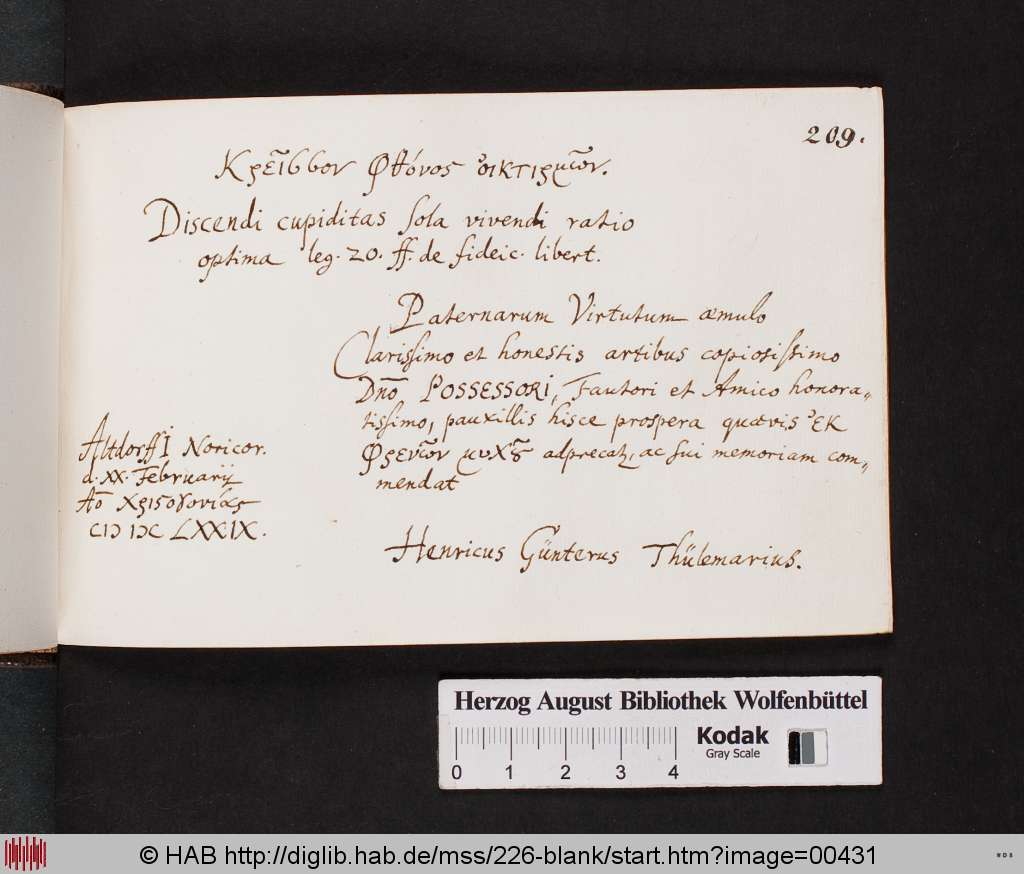 209.
Κρεῖσσον Φθόνος οἰκτιρμῶν.
Discendi cupiditas sola vivendi ratio
optima leg. 20. ff. de fideic. libert.
Paternarum Virtutum æmulo
Clarissimo et honestis artibus copiosissimo
Dnō POSSESSORI, Fautori et Amico honora-
tissimo, pauxillis hisce prospera quævis ἐκ
Φρενῶν μυχοῦ adprecatʒ, ac sui memoriam com-
mendat
Altdorffî Noricor.
d. XX. Februarij
Aō Χριστογονίας
CIↃ IↃC LXXIX.
Henricus Günterus Thülemarius.
Herzog August Bibliothek Wolfenbüttel
Kodak
Gray Scale
0 1 2 3 4
© HAB http://diglib.hab.de/mss/226-blank/start.htm?image=00431
WDB